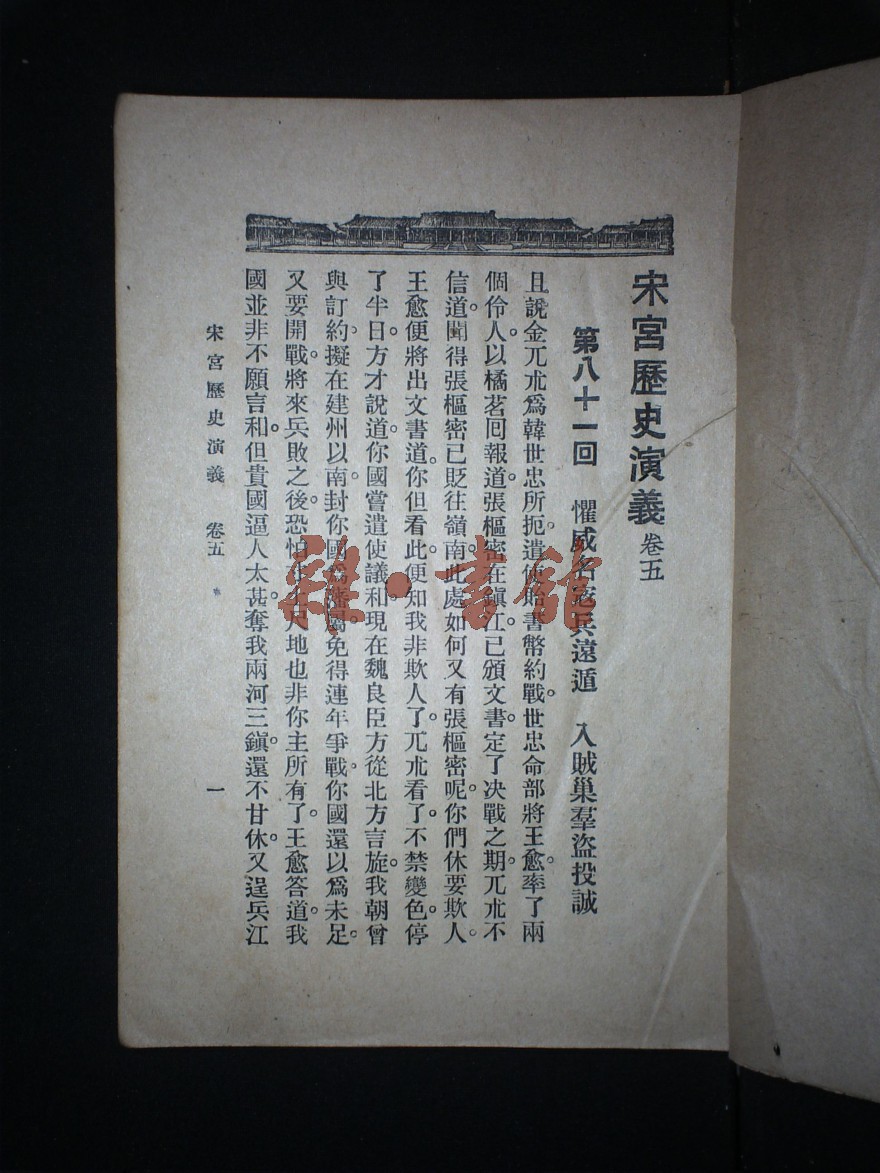 宋宮歷史演義 卷五
第八十一回 懼威名寇兵遠遁 入賊巢羣盜投誠
且說金兀朮爲韓世忠所扼。遣使貽書幣約戰。世忠命部將王愈。率了兩
個伶人。以橘茗回報道。張樞密在鎭江。已頒文書。定了决戰之期。兀朮不
信道。聞得張樞密已貶往嶺南。此處如何又有張樞密呢。你們休要欺人。
王愈便將出文書道。你但看此。便知我非欺人了。兀朮看了。不禁變色。停
了半日。方才說道。你國嘗遣使議和。現在魏良臣方從北方言旋。我朝曾
與訂約。擬在建州以南。封你國爲藩屬。免得連年爭戰。你國還以爲未足。
又要開戰。將來兵敗之後。恐怕尺地也非你主所有了。王愈答道。我
國並非不願言和。但貴國逼人太甚。奪我兩河三鎭。還不甘休。又逞兵江
宋宮歷史演義 卷五 一
雜·書館